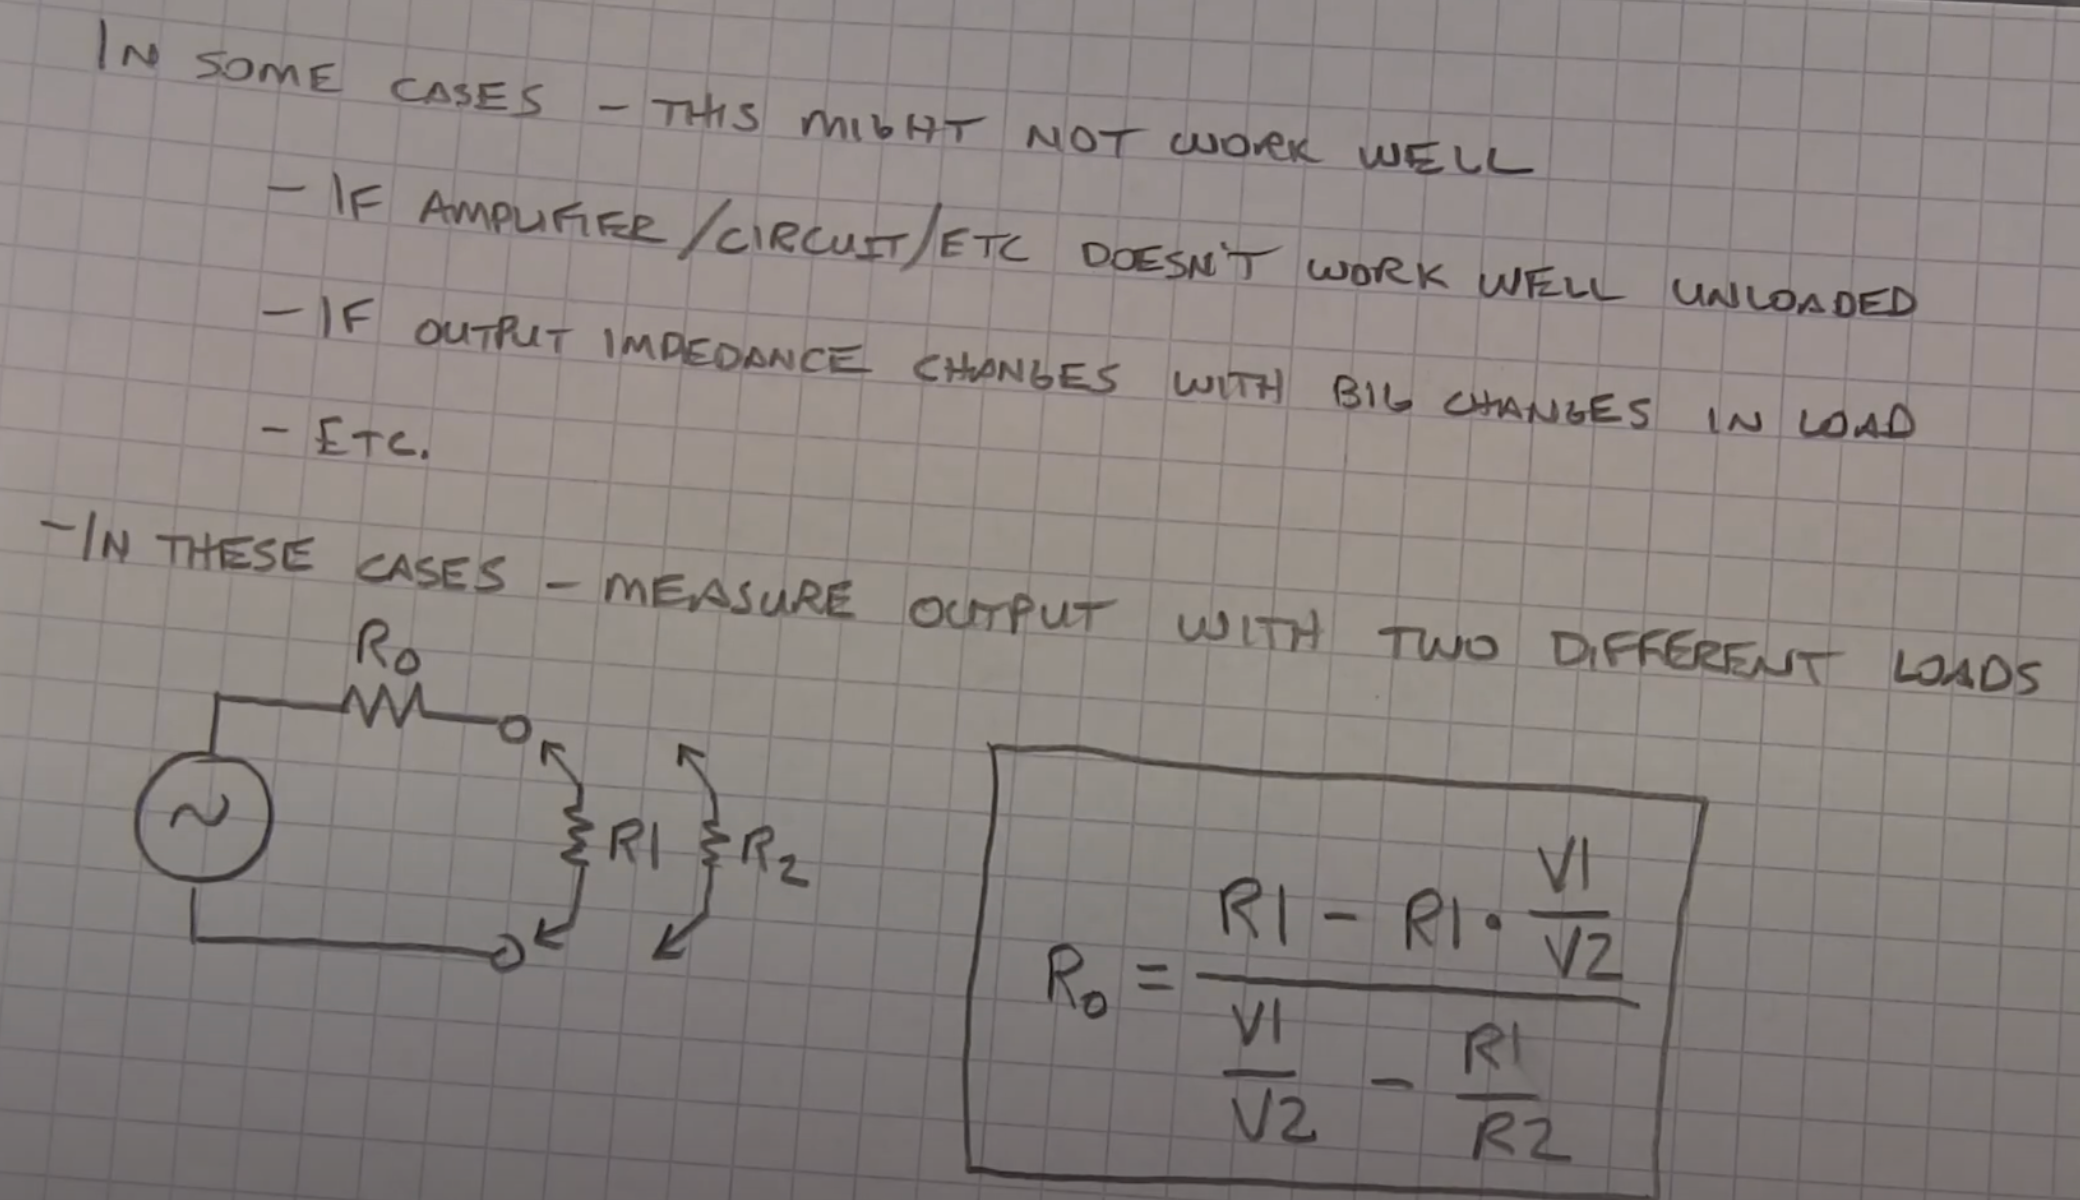 IN SOME CASES - THIS MIGHT NOT WORK WELL
- IF AMPLIFIER/CIRCUIT/ETC DOESN'T WORK WELL UNLOADED
- IF OUTPUT IMPEDANCE CHANGES WITH BIG CHANGES IN LOAD
- ETC.
- IN THESE CASES - MEASURE OUTPUT WITH TWO DIFFERENT LOADS
Ro
~
R1
R2
Ro = (R1 - R1 · V1/V2) / (V1/V2 - R1/R2)